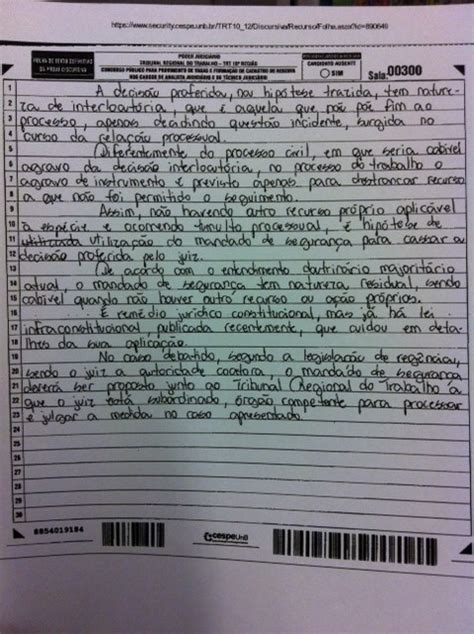 https://www.security.cespe.unb.br/TRT10_12/Discursiva/Recurso/Folha.aspx?id=890649
FOLHA DE TEXTO DEFINITIVO
DA PROVA DISCURSIVA
PODER JUDICIÁRIO
TRIBUNAL REGIONAL DO TRABALHO – TRT 10ª REGIÃO
CONCURSO PÚBLICO PARA PROVIMENTO DE VAGAS E FORMAÇÃO DE CADASTRO DE RESERVA
NOS CARGOS DE ANALISTA JUDICIÁRIO E DE TÉCNICO JUDICIÁRIO
CANDIDATO AUSENTE
SIM
Sala: 00300
1 A decisão proferida, na hipótese trazida, tem nature-
2 za de interloatória, que é aquela que não põe fim ao
3 processo, apenas decidindo questão incidente, surgida no
4 curso da relação processual.
5 Diferentemente do processo civil, em que seria cabível
6 agravo da decisão interloatória, no processo do trabalho o
7 agravo de instrumento é previsto apenas para destrancar recurso
8 a que não foi permitido o seguimento.
9 Assim, não havendo outro recurso próprio aplicável
10 à espécie e ocorrendo tumulto processual, é hipótese de
11 utilizada utilização do mandado de segurança para cassar a
12 decisão proferida pelo juiz.
13 De acordo com o entendimento doutrinário majoritário
14 atual, o mandado de segurança tem natureza residual, sendo
15 cabível quando não houver outro recurso ou ação próprios.
16 É remédio jurídico constitucional, mas já há lei
17 infraconstitucional, publicada recentemente, que cuidou em deta-
18 lhes da sua aplicação.
19 No caso debatido, segundo a legislação de regência,
20 sendo o juiz a autoridade coatora, o mandado de segurança
21 deverá ser proposto junto ao Tribunal Regional do Trabalho a
22 que o juiz está subordinado, órgão competente para processar
23 e julgar a medida no caso apresentado.
24
25
26
27
28
29
30
8854019184
cespeUnB